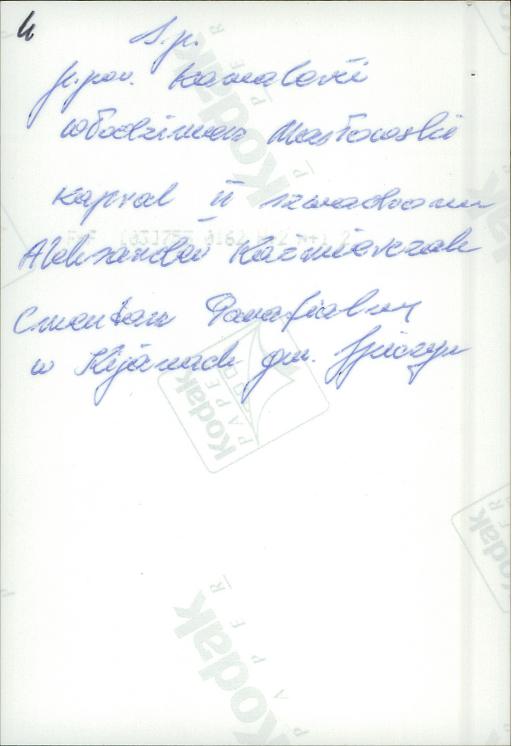 4
Ś.p.
p.por. Kawalerii
Włodzimierz Masłowski
kapral II szwadronu
Aleksander Kaźmierczak
Cmentarz Parafialny
w Kijanach gm. Spiczyn
Kodak
PAPER
Kodak
PAPER
Kodak
PAPER
Kodak
PAPER